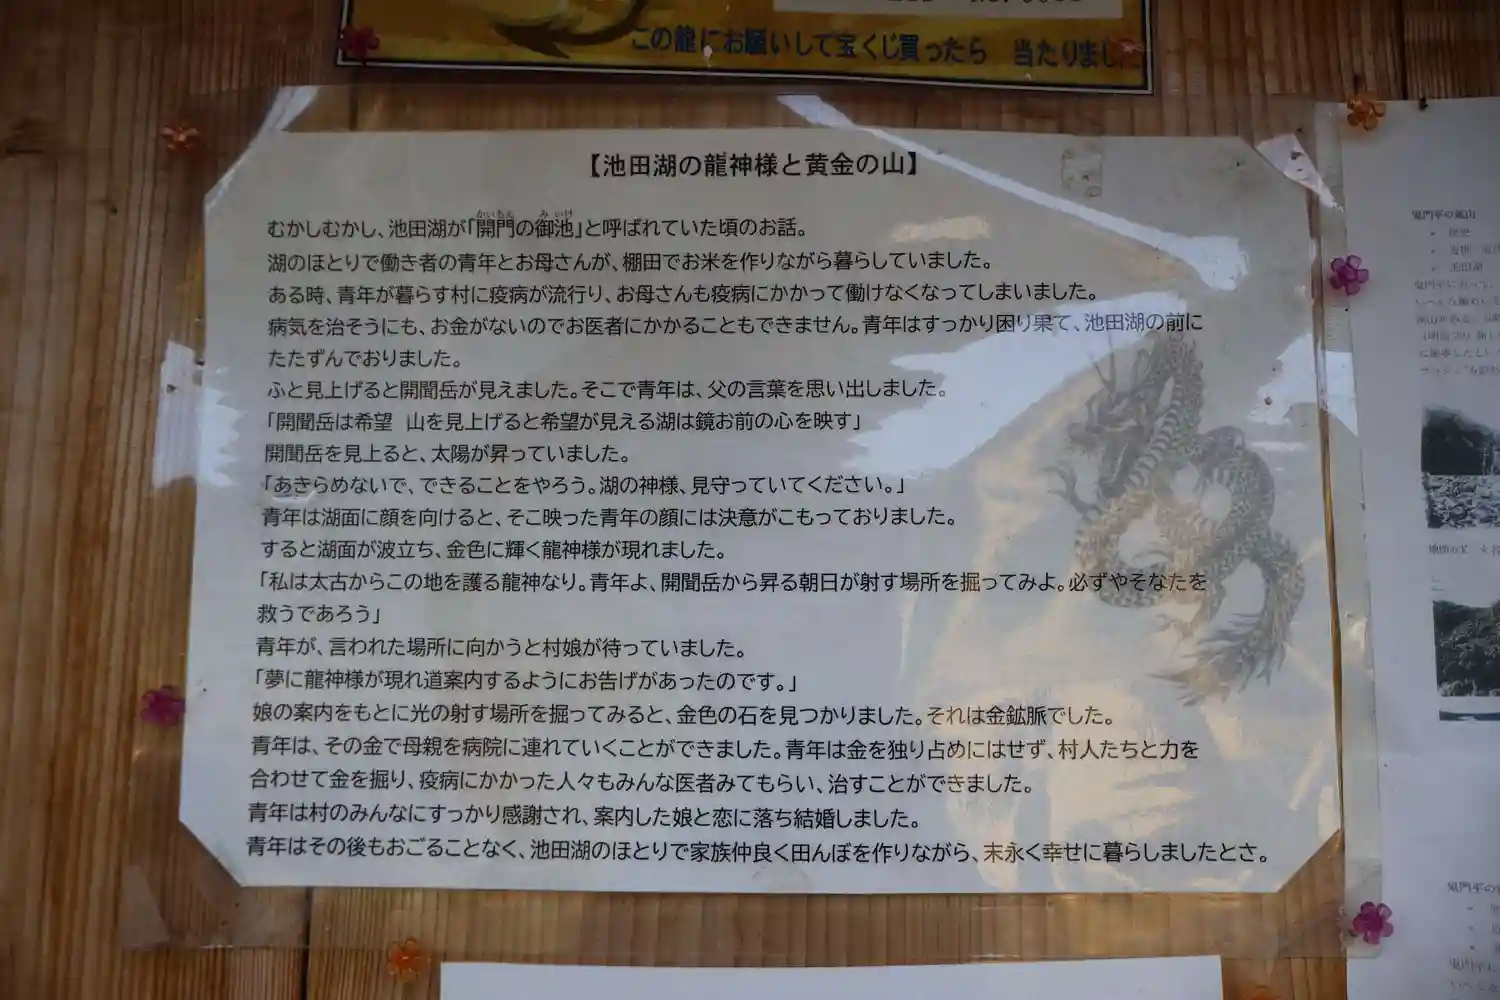 この龍にお願いして宝くじ買ったら 当たりました
【池田湖の龍神様と黄金の山】
むかしむかし、池田湖が「開門の御池」と呼ばれていた頃のお話。
湖のほとりで働き者の青年とお母さんが、棚田でお米を作りながら暮らしていました。
ある時、青年が暮らす村に疫病が流行り、お母さんも疫病にかかって働けなくなってしまいました。
病気を治そうにも、お金がないのでお医者にかかることもできません。青年はすっかり困り果て、池田湖の前に
たたずんでおりました。
ふと見上げると開聞岳が見えました。そこで青年は、父の言葉を思い出しました。
「開聞岳は希望 山を見上げると希望が見える湖は鏡お前の心を映す」
開聞岳を見上ると、太陽が昇っていました。
「あきらめないで、できることをやろう。湖の神様、見守っていてください。」
青年は湖面に顔を向けると、そこ映った青年の顔には決意がこもっておりました。
すると湖面が波立ち、金色に輝く龍神様が現れました。
「私は太古からこの地を護る龍神なり。青年よ、開聞岳から昇る朝日が射す場所を掘ってみよ。必ずやそなたを
救うであろう」
青年が、言われた場所に向かうと村娘が待っていました。
「夢に龍神様が現れ道案内するようにお告げがあったのです。」
娘の案内をもとに光の射す場所を掘ってみると、金色の石を見つかりました。それは金鉱脈でした。
青年は、その金で母親を病院に連れていくことができました。青年は金を独り占めにはせず、村人たちと力を
合わせて金を掘り、疫病にかかった人々もみんな医者みてもらい、治すことができました。
青年は村のみんなにすっかり感謝され、案内した娘と恋に落ち結婚しました。
青年はその後もおごることなく、池田湖のほとりで家族仲良く田んぼを作りながら、末永く幸せに暮らしましたとさ。